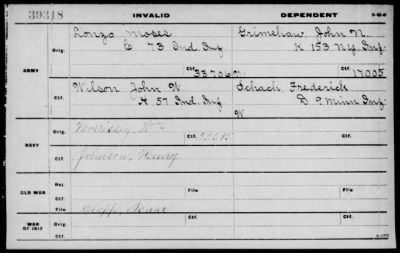 39318 INVALID DEPENDENT
Lonzo Moses Grimshaw John N.
Orig. C 73 Ind Inf K 153 N.Y. Inf
ARMY Ctf. 33706 Ctf. 17005
Wilson John W Schach Frederick
Ctf. H 57 Ind. Inf D 9 Minn Inf
W
Orig. Morrissey, Wm Ctf.
NAVY
Ctf. Johnson, Henry
Rej.
OLD WAR Ctf. File Ctf. File
File Isaac
WAR OF 1812 Ctf. Ctf.